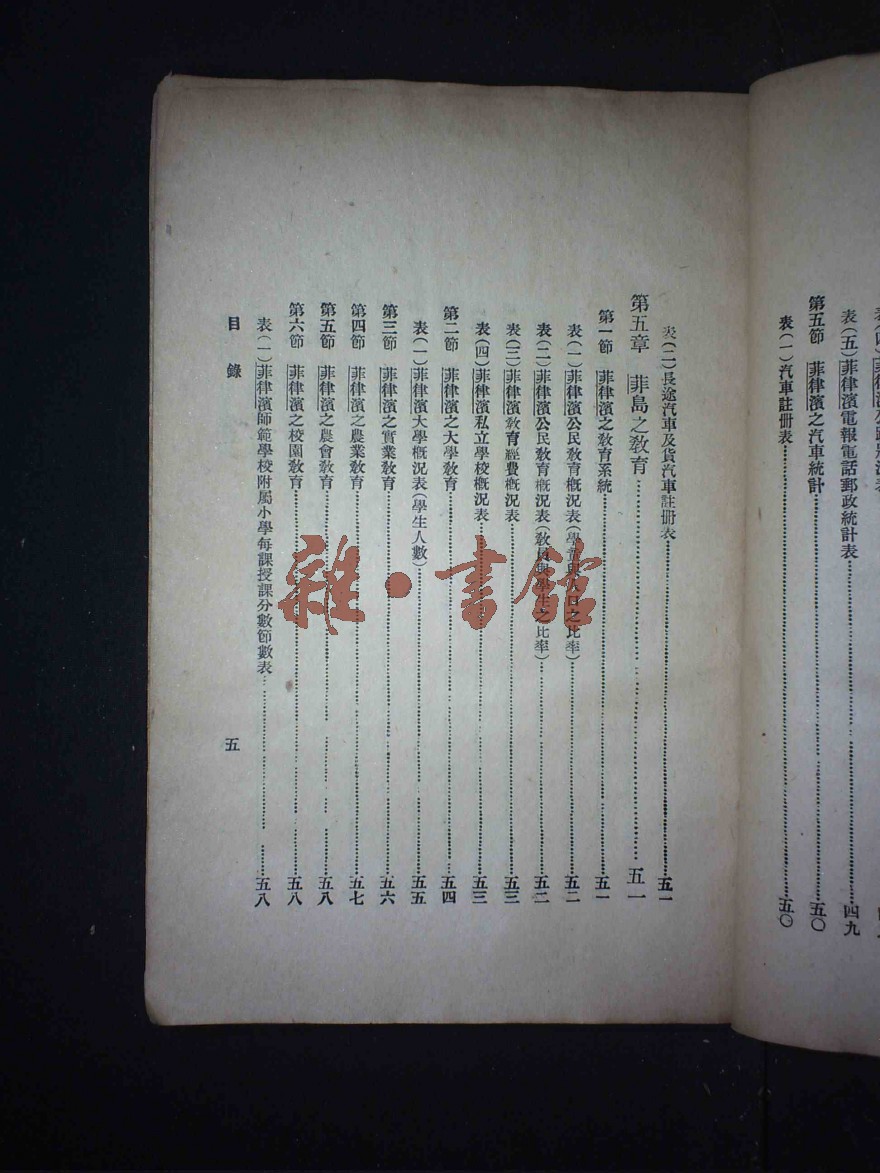 表(五)菲律濱電報電話郵政統計表……四九
第五節 菲律濱之汽車統計……五〇
表(一)汽車註冊表……五〇
表(二)長途汽車及貨汽車註冊表……五一
第五章 菲島之教育……五一
第一節 菲律濱之教育系統……五一
表(一)菲律濱公民教育概況表(學童與人口之比率)……五二
表(二)菲律濱公民教育概況表(教員與學生之比率)……五二
表(三)菲律濱教育經費概況表……五三
表(四)菲律濱私立學校概況表……五三
第二節 菲律濱之大學教育……五四
表(一)菲律濱大學概況表(學生人數)……五五
第三節 菲律濱之實業教育……五六
第四節 菲律濱之農業教育……五七
第五節 菲律濱之農會教育……五八
第六節 菲律濱之校園教育……五八
表(一)菲律濱師範學校附屬小學每課授課分數節數表……五八
目錄 五
雜·書館